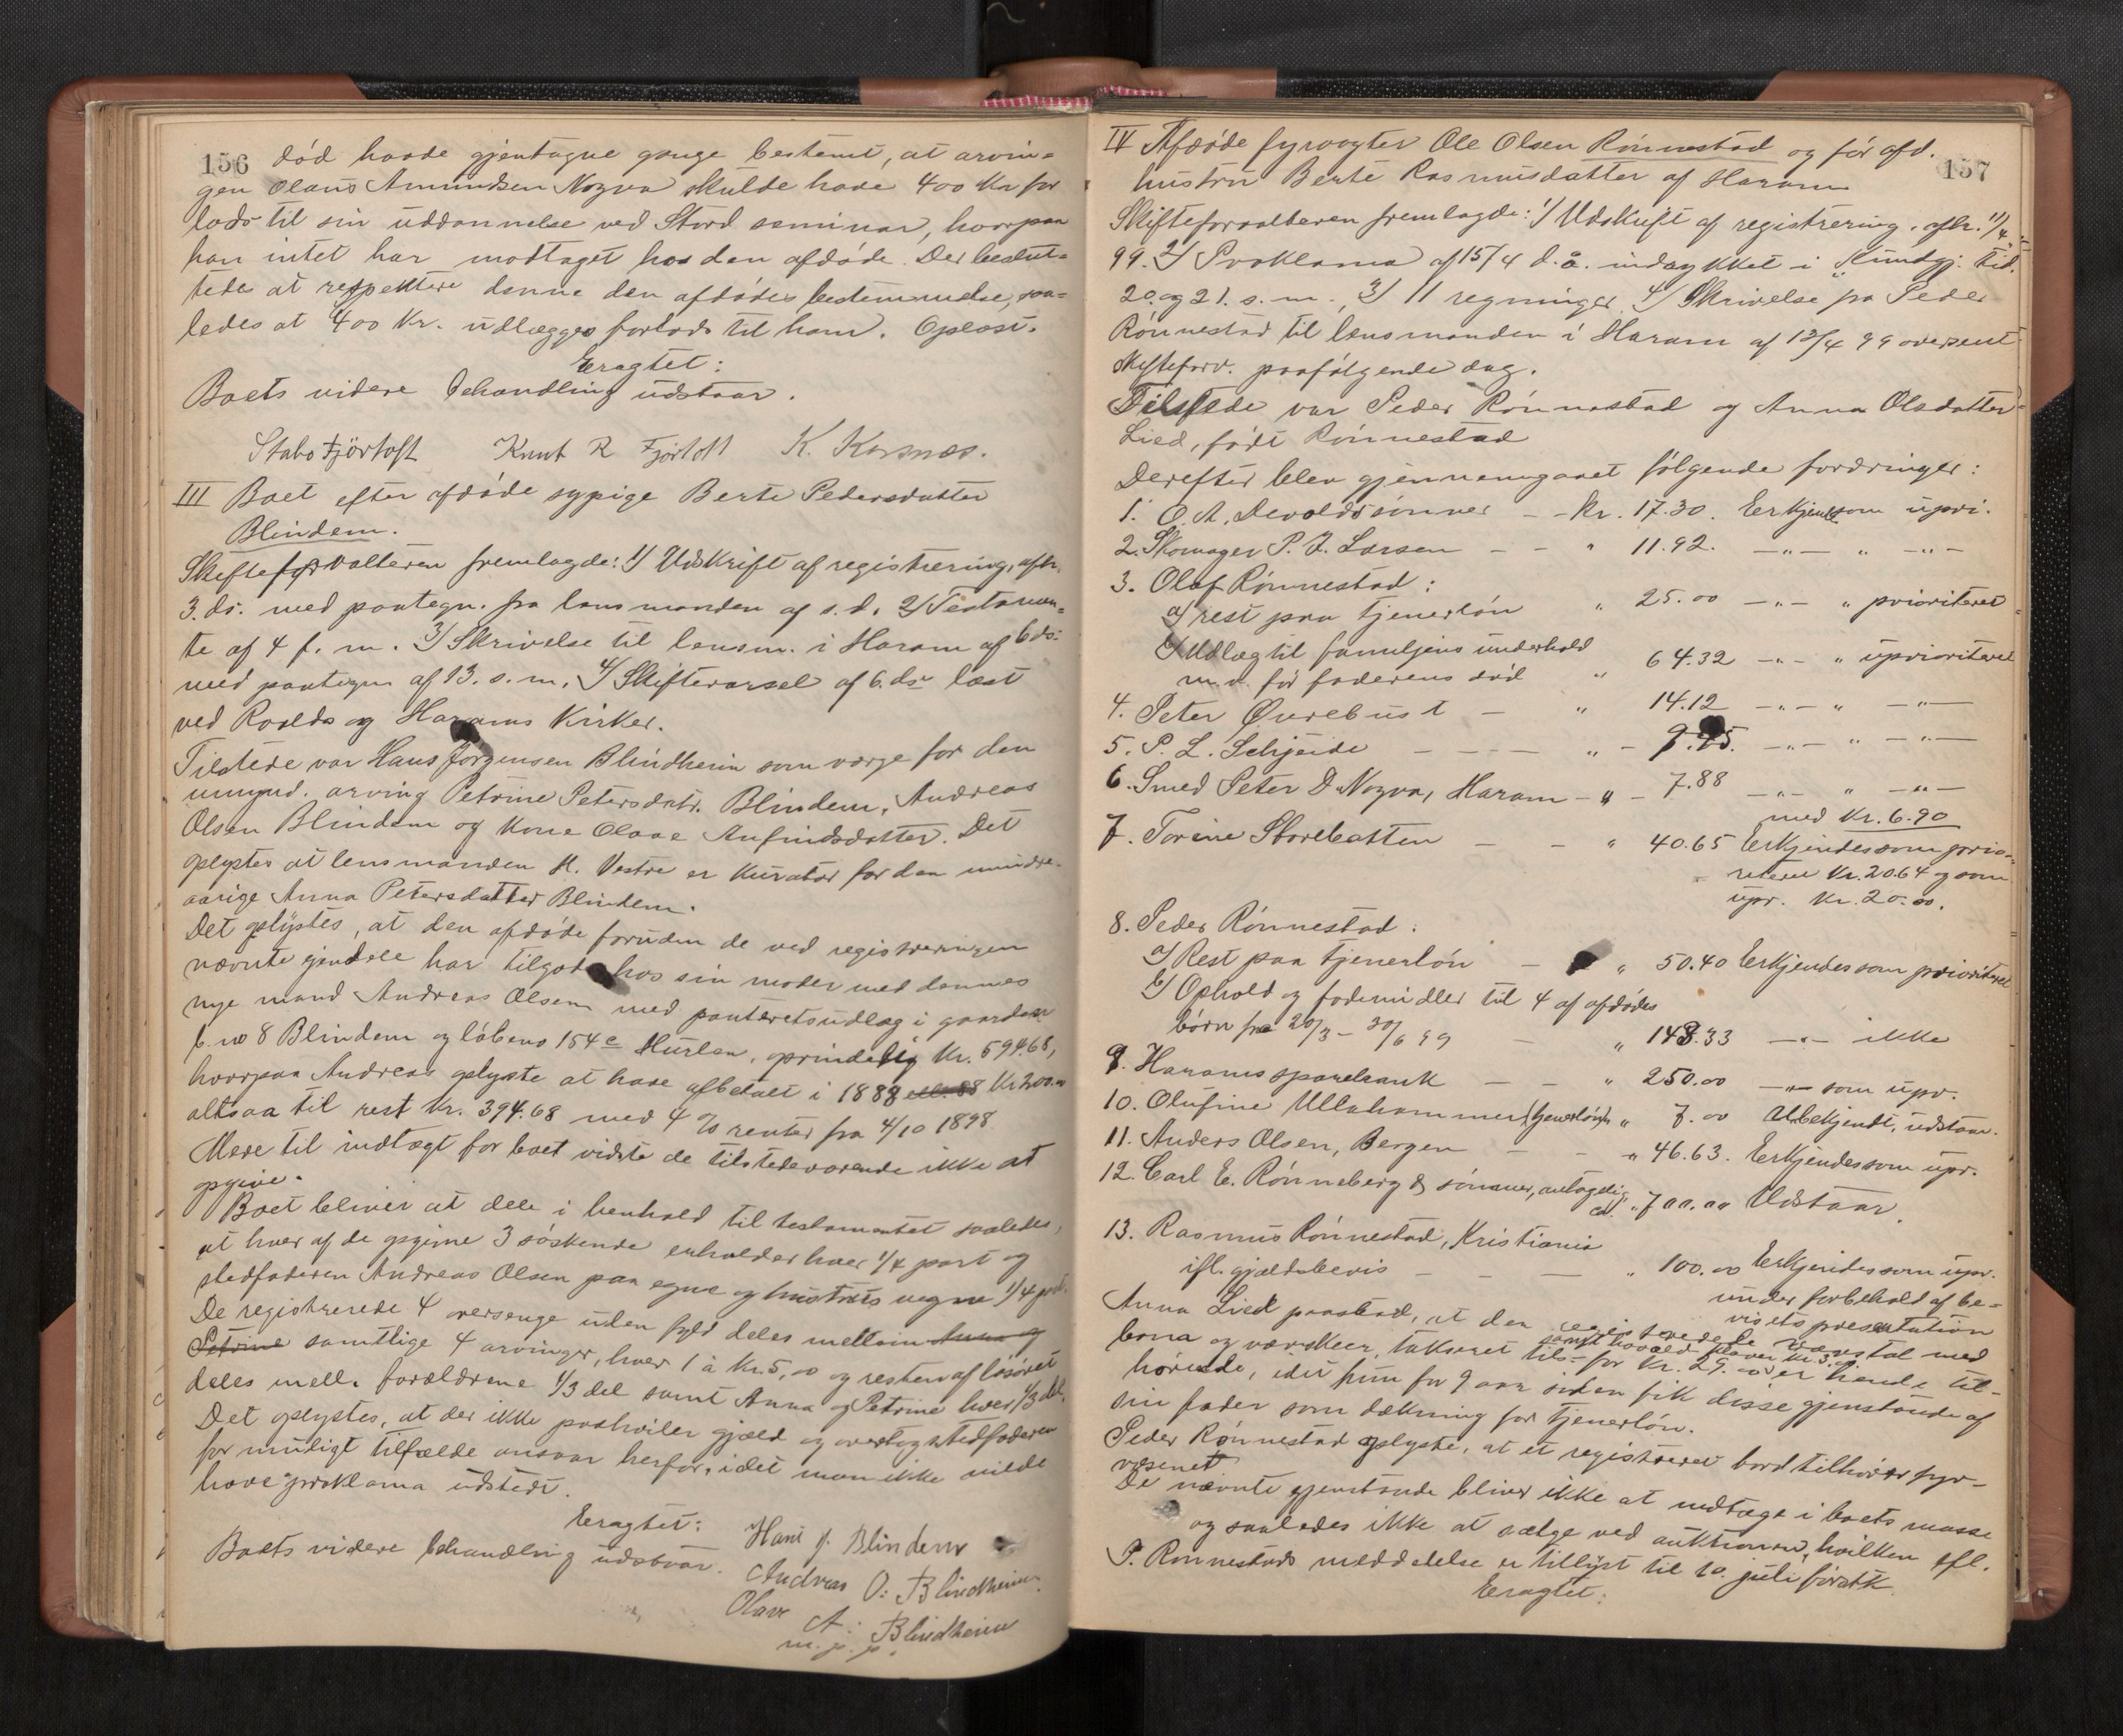 156
død havde gjentagne gange bestemt, at arvin=
gen Olaus Amundsen Nogva skulde have 400 Kr for
lods til sin uddannelse ved Stord seminar, hvorpaa
han intet har modtaget hos den afdøde. Der beslut=
tede at respektere denne den afdødes bestemmelse, saa=
ledes at 400 Kr. udlægges forlods til ham. Oplæst.
Eragtet:
Boets videre behandling udstaar.
Fjørtoft Knut R Fjørtoft K. Korsnæs.
III Boet efter afdøde sypige Berte Pedersdatter
Blindem.
Skifteforvalteren fremlagde: 1/ Udskrift af registrering, afh.
3. ds. med paategn. fra lensmanden af s.d. 2/ Testamen=
te af 4 f. m. 3/ Skrivelse til lensm. i Haram af 6 ds:
med paategn af 13. s. m. 4/ Skiftevarsel af 6. ds. læst
ved Roalds og Harams Kirker.
Tilstede var Hans Jørgensen Blindheim som værge for den
umynd. arving Petrine Petersdatr. Blindem, Andreas
Olsen Blindem og Kone Olave Anfindsdatter. Det
oplystes at lensmanden H. Vestre er Kurator for den mindre-
aarige Anna Petersdatter Blindem.
Det oplystes, at den afdøde foruden de ved registreringen
nævnte eiendele har tilgode hos sin moder med dennes
nye mand Andreas Olsen med panteretsudlæg i gaarden
b. no 8 Blindem og løbeno 154 c Hurlen, oprindelig Kr. 594.68,
hvorpaa Andreas oplyste at have afbetalt i 1888 Kr 200.00
altsaa til rest Kr. 394.68 med 4 % renter fra 4/10 1898
Mere til indtægt for boet vidste de tilstedeværende ikke at
opgive.
Boet bliver at dele i henhold til testamentet saaledes,
at hver af de opgivne 3 søskende erholder hver 1/4 part og
stedfaderen Andreas Olsen paa egne og hustrus vegne 1/4 part.
De registrerede 4 oversenge uden fyld deles mellem Anna og
Petrine samtlige 4 arvinger, hver 1 à Kr. 5,00 og resten af løsøret
deles mell. forældrene 1/3 del samt Anna og Petrine hver 1/3 del.
Det oplystes, at der ikke paahviler gjæld og overtog stedfaderen
for muligt tilfælde ansvar herfor, idet man ikke vilde
have proklama udstedt.
Eragtet:
Boets videre behandling udstaar.
Hans J. Blindem
Andreas O: Blindheim
Olave A: Blindheim
m. p. p.
157
IV Afdøde fyrvogter Ole Olsen Rønnestad og før afd.
hustru Berte Rasmusdatter af Haram
Skifteforvalteren fremlagde: 1/ Udskrift af registrering, afh. 11/4
99. 2/ Proklama af 15/4 d.å. indrykket i "Kundgj. tid."
20. og 21. s. m. 3/ 11 regninger 4/ Skrivelse fra Peder
Rønnestad til lensmanden i Haram af 13/4 99 oversent
skifteforv. paafølgende dag.
Tilstede var Peder Rønnestad og Anna Olsdatter
Lied, født Rønnestad
Derefter blev gjennemgaaet følgende fordringer:
1. O. A. Devolds sønner - - Kr. 17.30. Erkjendes som upri.
2. Skomager P. J. Larsen - - " 11.92. -"- " -"-
3. Olaf Rønnestad:
a/ rest paa tjenerløn " 25.00 -"- " prioriteret
b/ Udlæg til familjens underhold
m. v. før faderens død " 64.32 -"- " uprioriteret
4. Peter Ourebust - " 14.12 -"- " -"-
5. P. L. Schjeide - - - - " -"- " -"-
6. Smed Peter D. Nogva, Haram - " - 7.88 -"- " -"-
med Kr. 6.90
7. Torine Storebatten - - " 40.65 Erkjendes som prio-
riteret Kr. 20.64 og som
upr. Kr. 20.00.
8. Peder Rønnestad:
a/ Rest paa tjenerløn - " 50.40 Erkjendes som prioriteret
b/ Ophold og fødemidler til 4 af afdødes
børn fra 20/3 - 30/6 99 - " 148.33 -"- ikke
9. Harams sparebank - - " 250.00 -"- som upr.
10. Olufine Ullahammer (tjenerløn) " 7.00 Ubekjendt, udstaar.
11. Anders Olsen, Bergen - - " 46.63. Erkjendes som upr.
12. Carl E. Rønneberg & sønner, antagelig
ca. " 700.00 Udstaar.
13. Rasmus Rønnestad, Kristiania
ifl. gjældsbevis - - - " 100.00 Erkjendes som upr.
under forbehold af be=
visets presentation
Anna Lied paastod, at den registrerede vævstol med
bona og vævskeer, takseret tils. for Kr. 29.00 er hende til-
hørende, idet hun for 9 aar siden fik disse gjenstande af
sin fader som dækning for tjenerløn.
Peder Rønnestad oplyste, at et registreret bord tilhører fyr-
væsenet
De nævnte gjenstande bliver ikke at indtage i boets masse
og saaledes ikke at sælge ved auktionen, hvilken ifl.
P. Rønnestads meddelelse er tillyst til 10. juli førstk.
Eragtet: